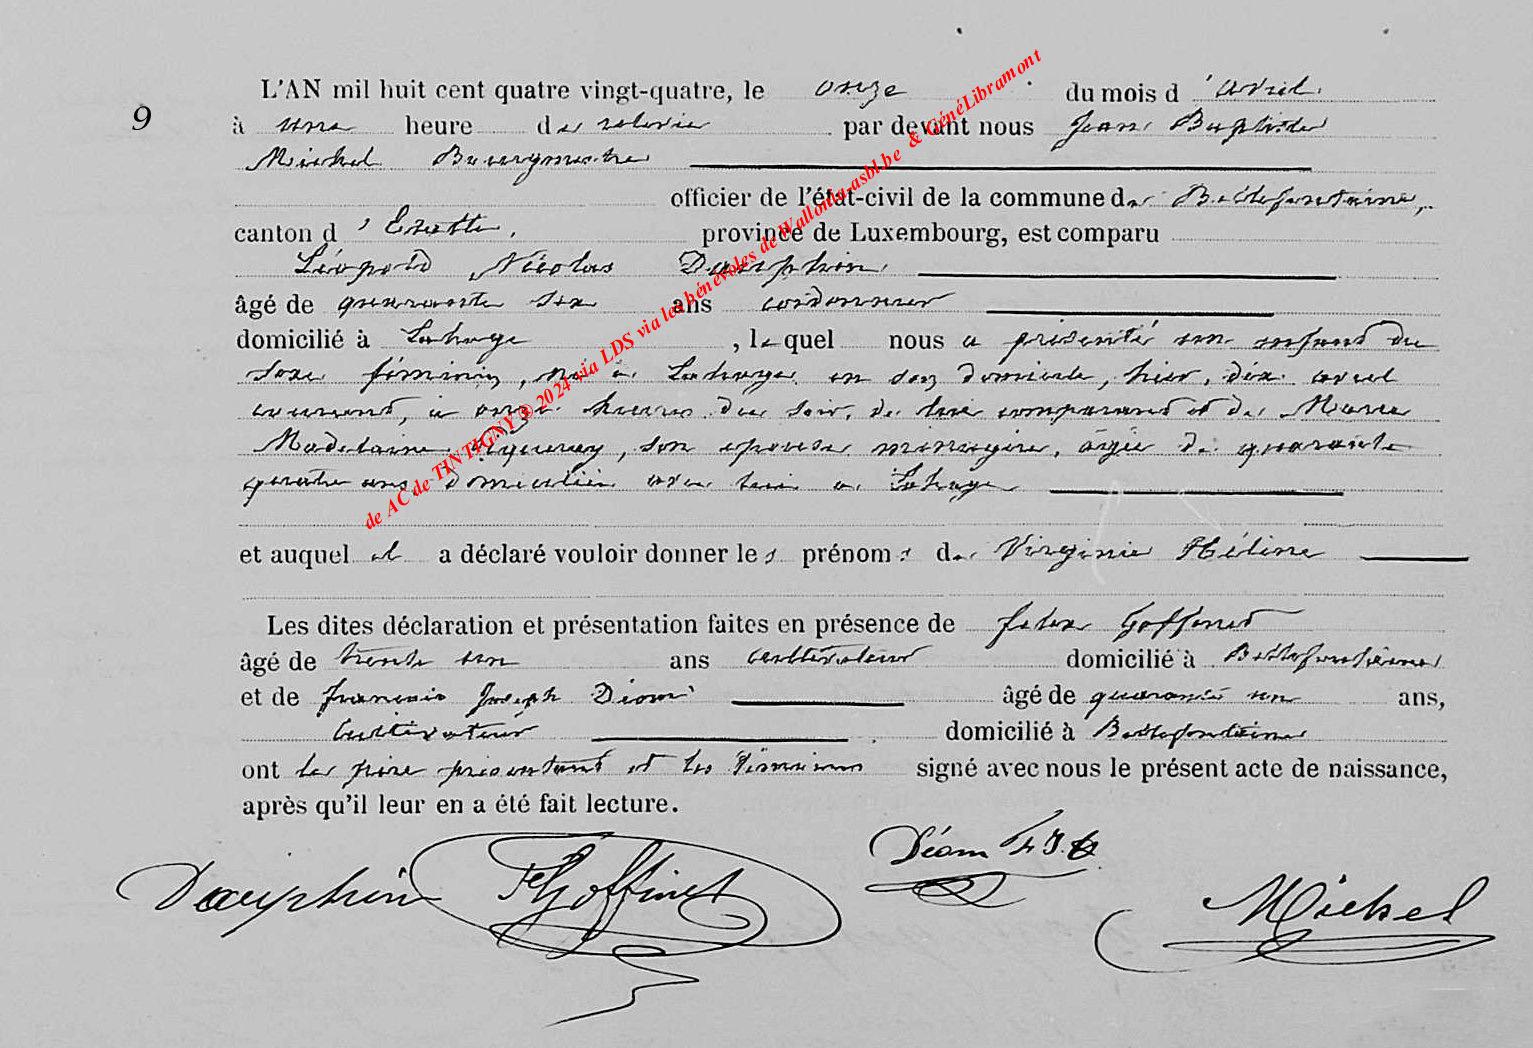 L'AN mil huit cent quatre vingt-quatre, le onze du mois d'avril
9
à une heure de relevée par devant nous Jean Baptiste
Michel Bourgmestre
officier de l'état-civil de la commune de Bellefontaine,
canton d'Etalle, province de Luxembourg, est comparu
Léopold Nicolas Dauphin
âgé de quarante six ans cordonnier
domicilié à Lahage, lequel nous a présenté un enfant du
sexe féminin, né à Lahage en son domicile, hier, dix avril
courant, à onze heures du soir, de lui comparant et de Marie
Madelaine, son épouse ménagère, âgée de quarante
quatre ans domiciliée avec lui à Lahage
et auquel il a déclaré vouloir donner les prénoms de Virginie Hélène
Les dites déclaration et présentation faites en présence de Goffinet
âgé de trente un ans cultivateur domicilié à Bellefontaine
et de françois Joseph Déom âgé de quarante un ans,
Cultivateur domicilié à Bellefontaine
ont les père présentant et les témoins signé avec nous le présent acte de naissance,
après qu'il leur en a été fait lecture.
Dauphin Goffinet Déom F. J. Michel
de AC de TINTIGNY © 2024 via LDS via les bénévoles de Wallonia-asbl.be & GénéLibramont